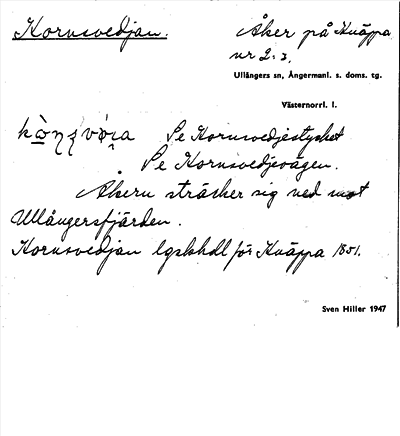 Kornsvedjan. Åker på Knäppa
nr 2:3.
Ullångers sn, Ångermanl. s. doms. tg.
Västernorrl. l.
Se Kornsvedjestycket
Se Kornsvedjevägen.
Åkern sträcker sig ned mot
Ullångersfjärden.
Kornsvedjan lgskhdl för Knäppa 1851.
Sven Hiller 1947